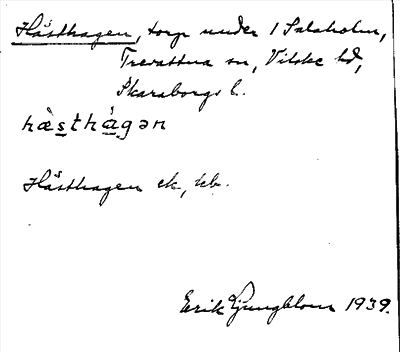 Hästhagen, torp under 1 Salaholm,
Trevattna sn, Vilske hd,
Skaraborgs l.
hæ̀sthàgən
Hästhagen ek, kb.
Erik Ljungblom 1939.